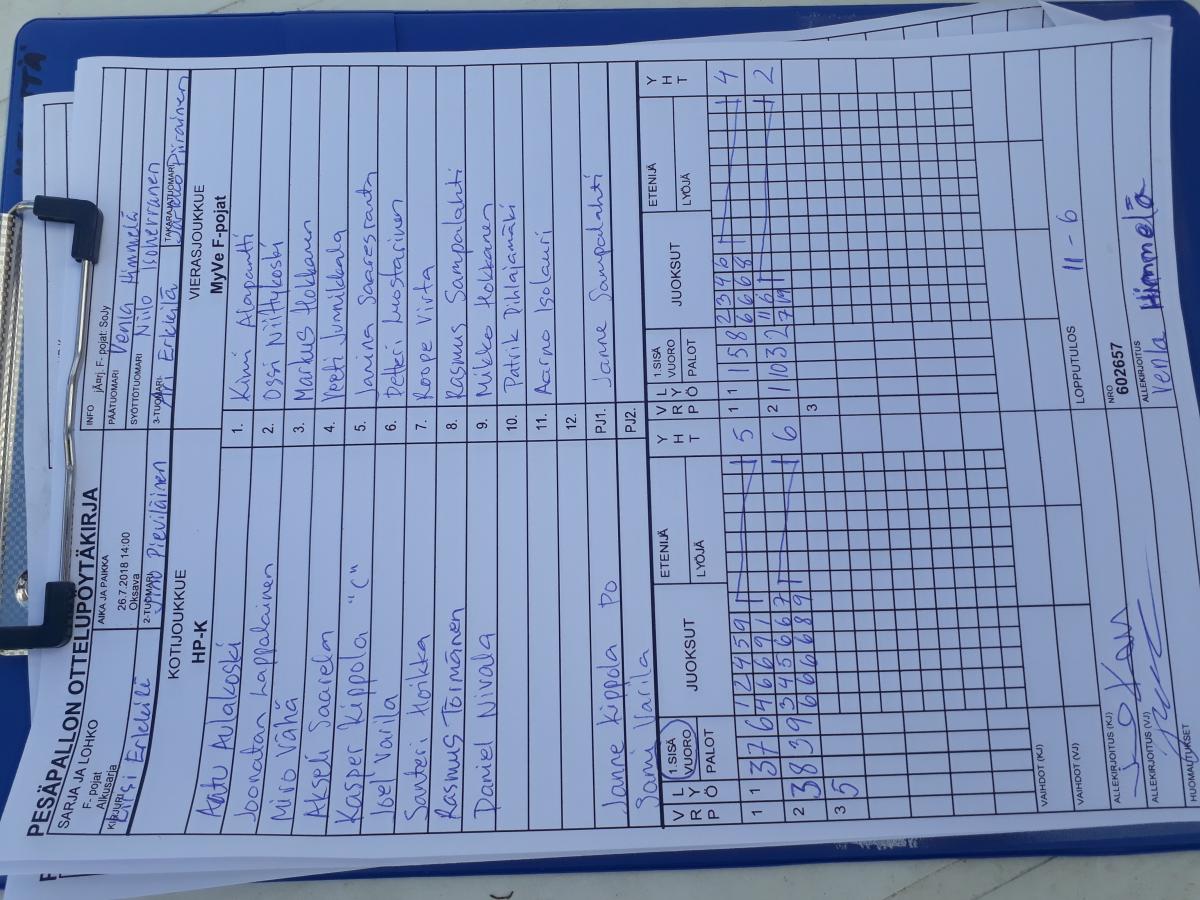 PESÄPALLON OTTELUPÖYTÄKIRJA
SARJA JA LOHKO
F- pojat
Alkusarja
AIKA JA PAIKKA
26.7.2018 14:00
Oksava
INFO jÄ¤rj. F- pojat: SoJy
PÄÄTUOMARI Venla Himmelä
SYÖTTÖTUOMARI Niilo Isoherranen
KIRJURI Erkkilä
2-TUOMARI Pieviläinen
3-TUOMARI Erkkilä
TAKARAJATUOMARI Piirainen
KOTIJOUKKUE
HP-K
VIERASJOUKKUE
MyVe F-pojat
Aatu Aulakoski 1. Kimi Alapantti
Joonatan Lappalainen 2. Ossi Niittykoski
Miro Vähä 3. Markus Hokkanen
Akseli Saarela 4. Veeti Junnikkala
Kasper Kippola "C" 5. Janina Saaresranta
Joel Varila 6. Petteri Luostarinen
Santeri Hoikka 7. Roope Virta
Rasmus Törmänen 8. Rasmus Sampalahti
Daniel Nivala 9. Mikko Hokkanen
10. Patrik Pihlajamäki
11. Aarno Isolauri
12.
Janne Kippola PJ1. Janne Sampalahti
Sami Varila PJ2.
V R P L Y Ö 1.SISÄ VUORO PALOT JUOKSUT ETENIJÄ LYÖJÄ Y H T V R P L Y Ö 1.SISÄ VUORO PALOT JUOKSUT ETENIJÄ LYÖJÄ Y H T
1 1 3 7 6 1 2 4 5 9 5 1 1 1 5 8 2 3 4 6 4
4 6 6 9 1 6 6 6 8
2 3 8 3 9 3 4 5 6 6 7 6 2 1 10 3 2 2
6 6 6 6 8 9
3 5 3
VAIHDOT (KJ)
VAIHDOT (VJ)
LOPPUTULOS 11 - 6
ALLEKIRJOITUS (KJ)
NRO
602657
ALLEKIRJOITUS (VJ)
ALLEKIRJOITUS
Venla Himmelä
HUOMAUTUKSET